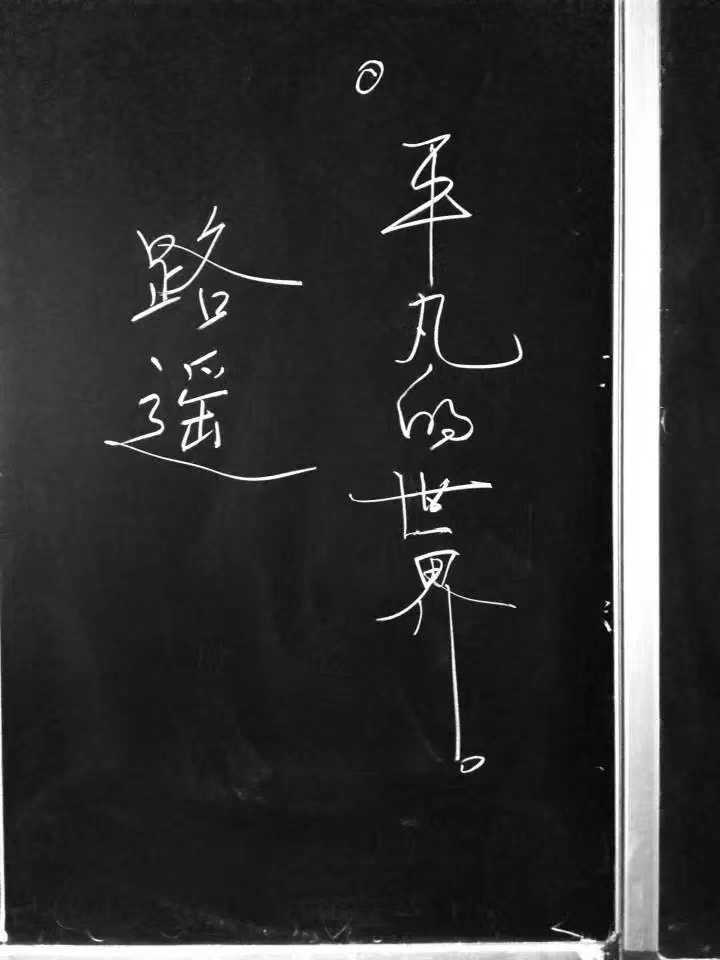 平凡的世界。
路遥